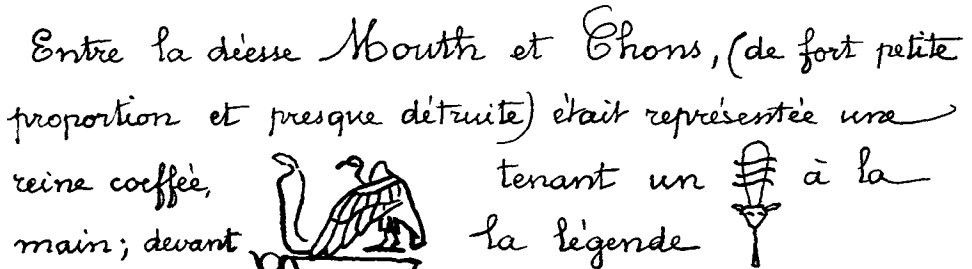 Entre la déesse Mouth et Chons, (de fort petite
proportion et presque détruite) était représentée une
reine coeffée, tenant un à la
main; devant la légende